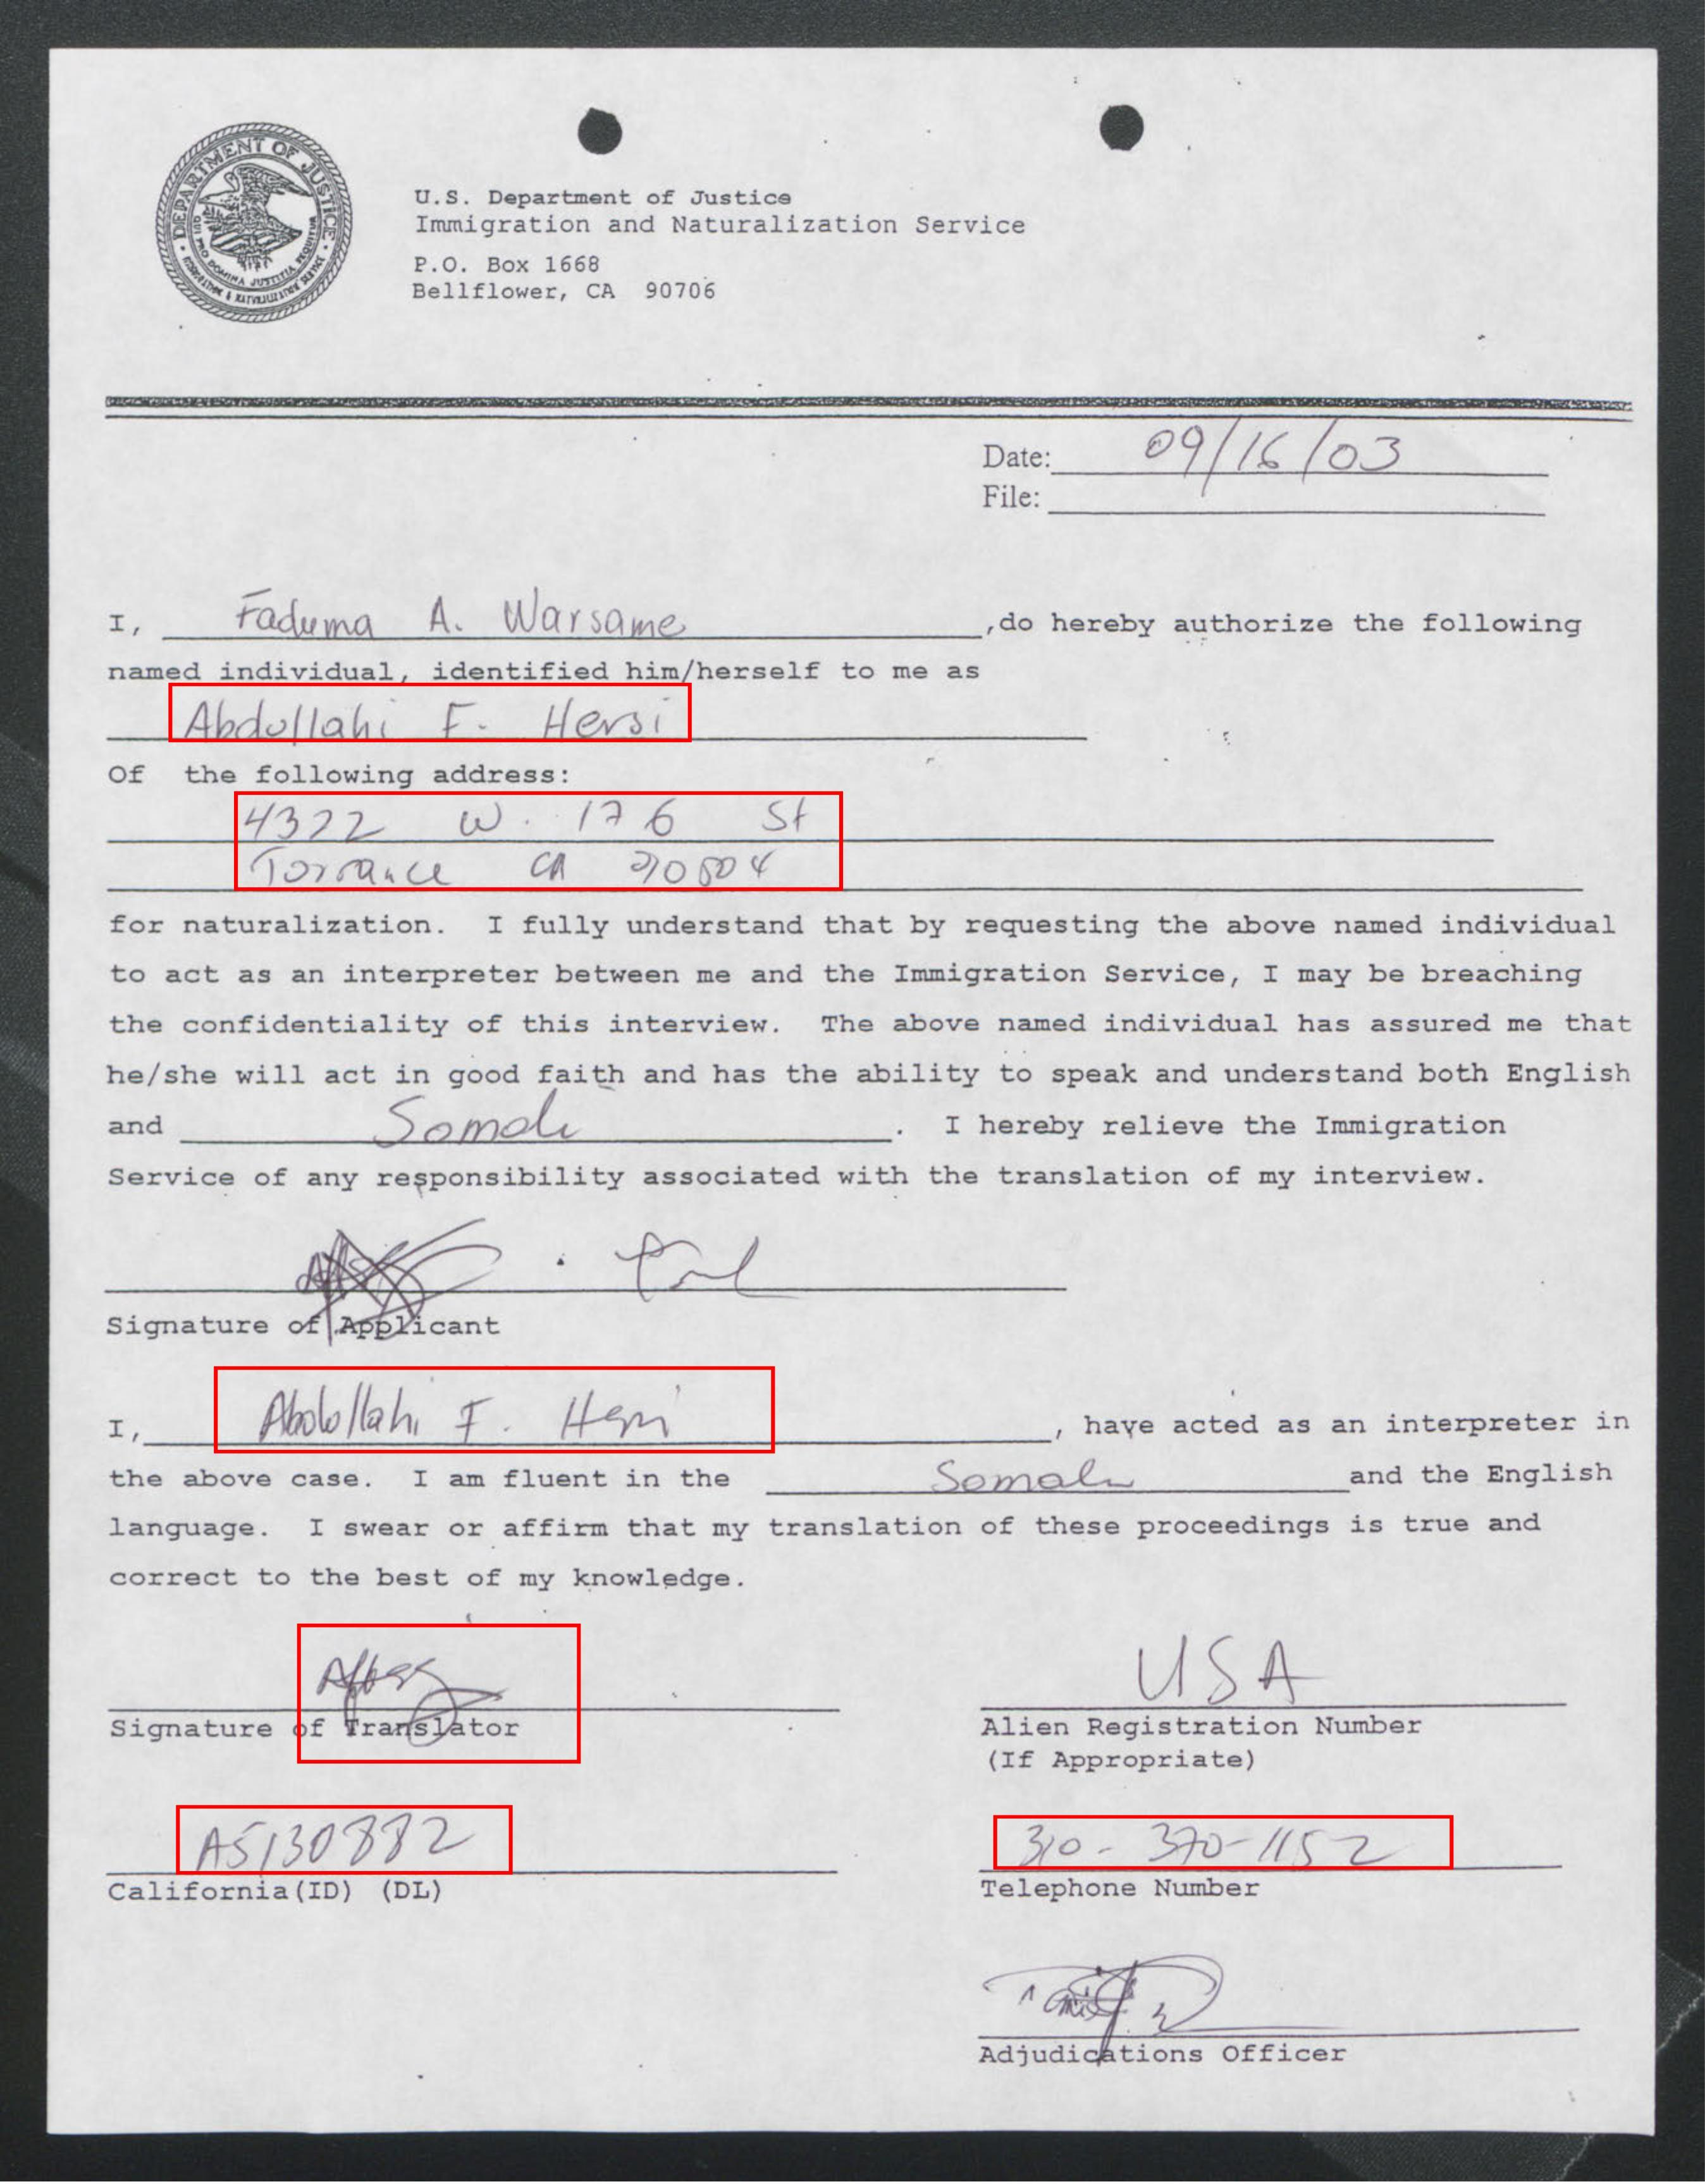 DEPARTMENT OF JUSTICE
QUI PRO DOMINA JUSTITIA SEQUITUR
IMMIGRATION & NATURALIZATION SERVICE
U.S. Department of Justice
Immigration and Naturalization Service
P.O. Box 1668
Bellflower, CA 90706
Date: 09/16/03
File:
I, Faduma A. Warsame, do hereby authorize the following
named individual, identified him/herself to me as
Abdullahi F. Hersi
Of the following address:
4322 W. 176 St
Torrance CA 90504
for naturalization. I fully understand that by requesting the above named individual
to act as an interpreter between me and the Immigration Service, I may be breaching
the confidentiality of this interview. The above named individual has assured me that
he/she will act in good faith and has the ability to speak and understand both English
and Somali. I hereby relieve the Immigration
Service of any responsibility associated with the translation of my interview.
Signature of Applicant
I, Abdullahi F. Hersi, have acted as an interpreter in
the above case. I am fluent in the Somali and the English
language. I swear or affirm that my translation of these proceedings is true and
correct to the best of my knowledge.
USA
Signature of Translator Alien Registration Number
(If Appropriate)
A5130882 310-370-1152
California(ID) (DL) Telephone Number
Adjudications Officer